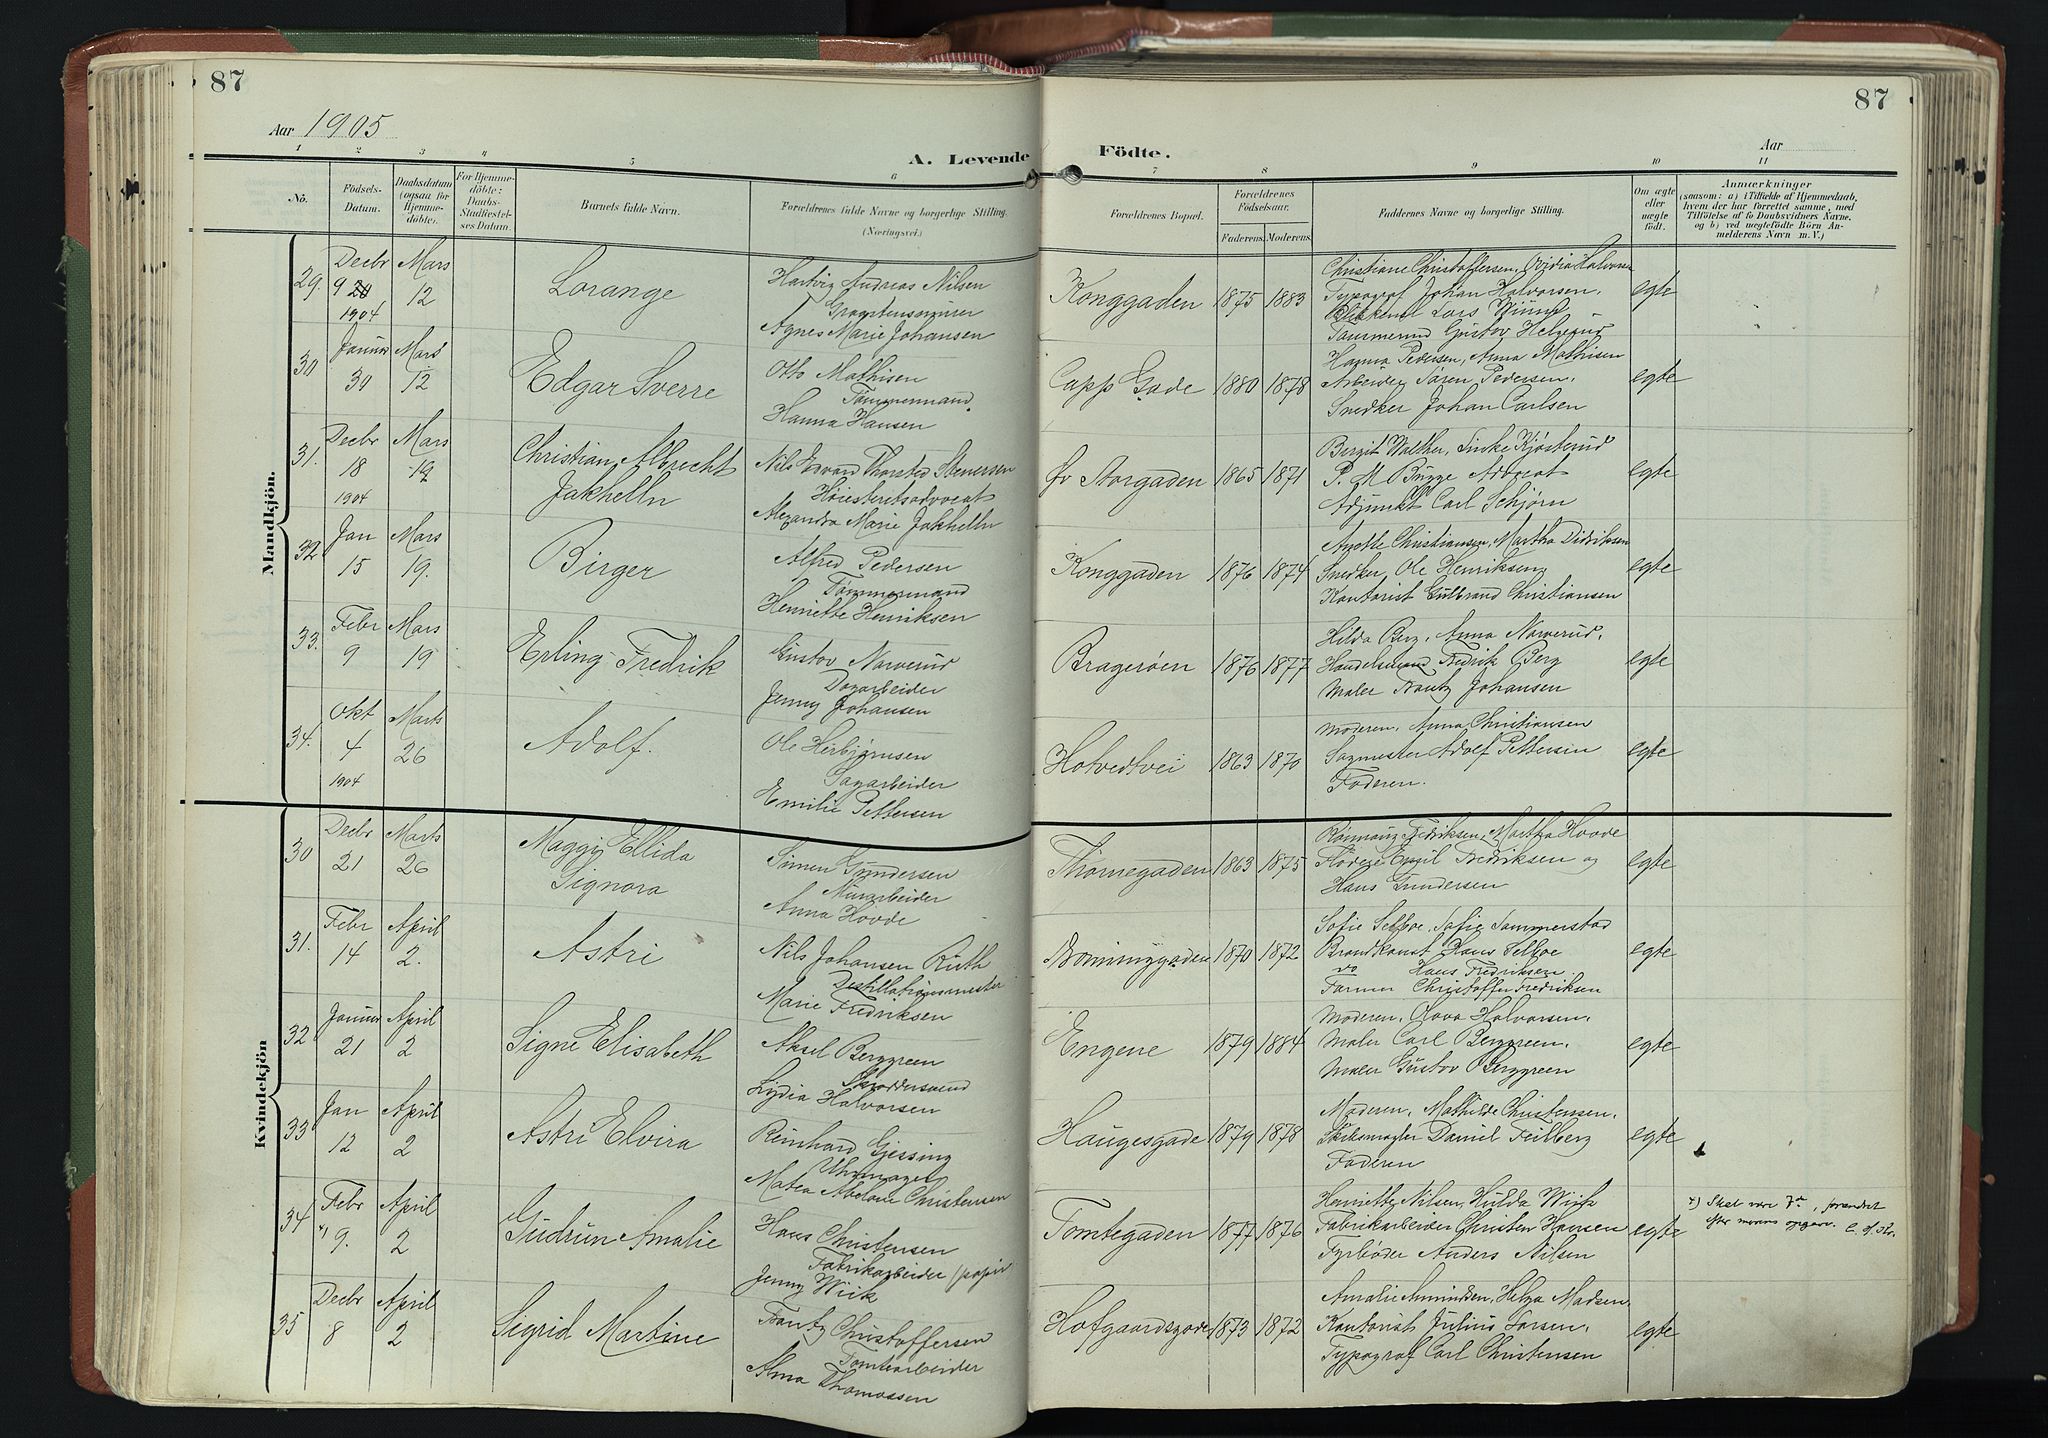 87
87
Aar 1905
Aar
A. Levende Födte.
1 2 3 4 5 6 7 8 9 10 11
No.
Födsels-
Datum.
Daabsdatum
(ogsaa for
Hjemme-
döbte).
For Hjemme-
döbte:
Daabs-
Stadfæstel-
ses Datum.
Barnets fulde Navn.
Forældrenes fulde Navne og borgerlige Stilling.
(Næringsvei.)
Forældrenes Bopæl.
Forældrenes
Födselsaar.
Faderens. Moderens.
Faddernes Navne og borgerlige Stilling.
Om ægte
eller
uægte
födt.
Anmærkninger
(saasom: a) i Tilfælde af Hjemmedaab,
hvem der har forrettet samme, med
Tilföielse af to Daabsvidners Navne,
og b) ved uægtefödte Börn An-
melderens Navn m. V.)
Mandkjön.
29. Decbr 9 1904
Mars 12
Lorange
Hartvig Andreas Nilsen
Agnes Marie Johansen
Konggaden 1875 1883
Christiane Christoffersen, Ovidia Halvorsen
Typograf Johan Halvorsen,
Lars
Gustav
egte
30 Januar 30
Mars 12
Edgar Sverre
Otto Mathisen
Tømmermand
Hanna Hansen
Capps Gade 1880 1878
Hanna Pedersen, Anna Mathisen
Arbeider Søren Pedersen,
Snedker Johan Carlsen
egte
31. Decbr 18 1904
Mars 19
Christian Albrecht
Jakhelln
Nils Thorstad Stenersen
Høiesteretsadvocat
Alexandra Marie Jakhelln
Øv Storgaden 1865 1871
Birgit Walther,
P. M Bugge Advocat
Adjunkt Carl Schjørn
egte
32 Jan 15
Mars 19.
Birger
Alfred Pedersen
Tømmermand
Henriette Henriksen
Konggaden 1876 1874
Anette Christiansen, Martha Didriksen
Snedker Ole Henriksen,
Kontorist Gulbrand Christiansen
egte
33. Febr 9
Mars 19
Erling Fredrik
Gustav Narverud
Dagarbeider
Jenny Johansen
Bragerøen 1876 1877
Hilda Berg, Anna Narverud,
Handelsmand Fredrik Berg
Maler Frantz Johansen
egte
34. Okt 4 1904
Marts 26
Adolf.
Ole Herbjørnsen
Sagarbeider
Emilie Pettersen
Hotvedtvei 1863 1870
Moderen, Anna Christiansen
Sagmester Adolf Pettersen
Faderen.
egte
Kvindekjön
30 Decbr 21
Marts 26
Maggy Ellida
Signora
Simen Gundersen
Murarbeider
Anna Hovde
Thornegaden 1863 1875
Fredriksen, Martha Hovde
Emil Fredriksen og
Hans Gundersen
egte
31. Febr 14
April 2.
Astri
Nils Johansen Ruth
Destillationsmester
Marie Fredriksen
Dronninggaden 1870 1872
Sofie Selboe, Sofie Sommerstad
Brandkonst Hans Selboe
do Hans Fredriksen
Farmer Christoffer Fredriksen
egte
32 Januar 21
April 2
Signe Elisabeth
Aksel Berggreen
Skræddersvend
Lydia Halvorsen
Engene 1879 1884
Moderen, Olava Halvorsen,
Maler Carl Berggreen,
Maler Gustav Berggreen
egte
33 Jan 12
April 2
Astri Elvira
Reinhard Gjessing
Uhrmager
Matea Abelone Christensen
Haugesgade 1879 1878
Moderen, Mathilde Christensen,
Skibsmægler Daniel Feilberg
Faderen
egte
34 Febr x) 9.
April 2
Gudrun Amalie
Hans Christensen
Fabrikarbeider (papir
Jenny Wiik
Tomtegaden 1877 1876
Henriette Nilsen, Hulda Wiik
Fabrikarbeider Christen Hansen
Fyrbøder Anders Nilsen
egte
x) Skal være 7de, forandret
efter morens opgave.
35 Decbr 8
April 2
Sigrid Martine
Frantz Christoffersen
Tomtearbeider
Alma Thomassen
Hofgaardsgaden 1873 1872
Amalie Amundsen, Helga Madsen,
Kontorist Julius Larsen,
Typograf Carl Christensen
egte